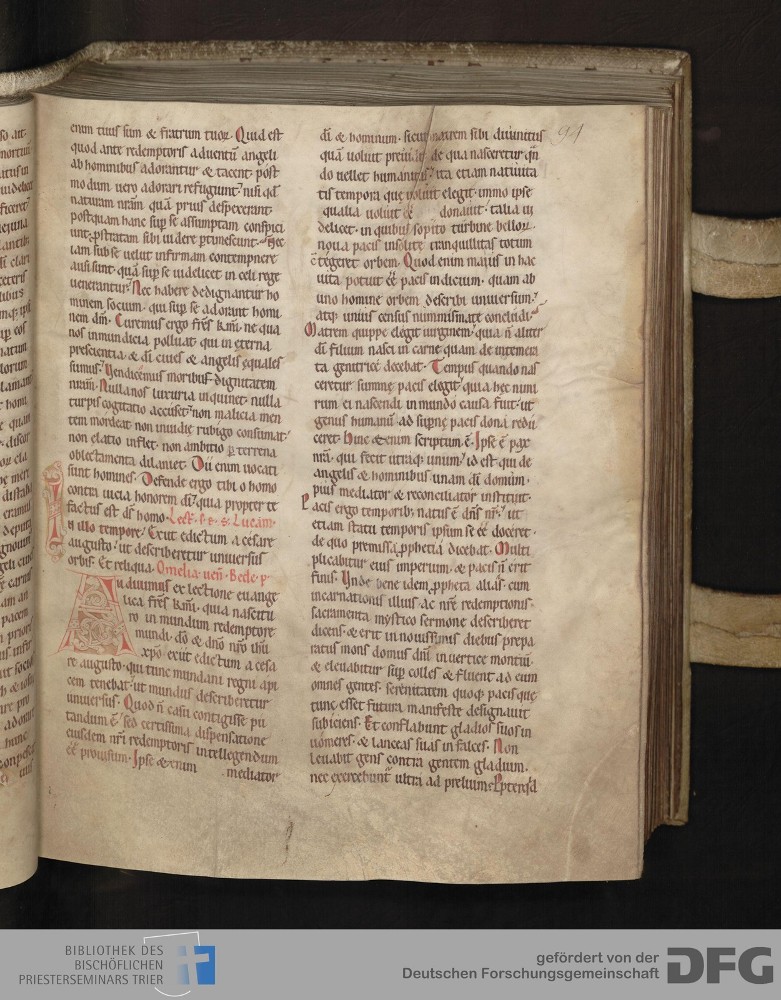 94
enim tuus sum & fratrum tuoꝝ. Quid est
quod ante redemptoris aduentū angeli
ab hominibus adorantur & tacent. post
modum uero adorari refugiunt? nisi qđ
naturam nr̄am quā prius despexerant.
postquam hanc sup se assumptam conspici
unt. ꝓstratam sibi uidere ptimescunt. Nec
iam sub se uelut infirmam contempnere
ausi sunt. quā sup se uidelicet in celi rege
uenerantur. Nec habere dedignantur ho
minem socium. qui sup se adorant homi
nem dm̄. Curemus ergo fr̄s kmi. ne qua
nos inmundicia polluat. qui in eterna
prescientia & di ciues & angelis equales
sumus. Vendicemus moribus dignitatem
nram. Nulla nos luxuria inquinet. nulla
turpis cogitatio accuset. non malicia men
tem mordeat. non inuidie rubigo consumat.
non elatio inflet. non ambitio p terrena
oblectamenta dilaniet. Dii enim uocati
sunt homines. Defende ergo tibi o homo
contra uicia honorem di. quia propter te
factus est ds homo. Lect. s. e. s. Lucam.
In illo tempore. Exiit edictum a cesare
augusto. ut describeretur uniuersus
orbis. Et reliqua. Omelia uen. Bede. p
Audiuimus ex lectione euange
lica fr̄s kmi. quia nascitu
ro in mundum redemptore
mundi. dō & dnō nr̄o ihu
xpo. exiit edictum a cesa
re augusto. qui tunc mundani regni api
cem tenebat. ut mundus describeretur
uniuersus. Quod n̄ casu contigisse pu
tandum ē. sed certissima dispensatione
eiusdem nr̄i redemptoris intellegendum
eē prouisum. Ipse &enim
mediator
di & hominum. sicut matrem sibi diuinitus
quā uoluit de qua nasceretur qn
do uellet humanitus. ita etiam natiuita
tis tempora que uoluit elegit. immo ipse
qualia uoluit donauit. talia ui
delicet. in quib; sopito turbine belloꝝ.
noua pacis insolite tranquillitas totum
c̄tegeret orbem. Quod enim maius in hac
uita potuit eē pacis indicium. quam ab
uno homine orbem describi uniuersum.
atq; unius census numismate concludi.
Matrem quippe elegit uirginem. quia n̄ aliter
di filium nasci in carne quam de intemera
ta genitrice decebat. Tempus quando nas
ceretur summe pacis elegit. quia hec nimi
rum ei nascendi in mundo causa fuit. ut
genus humanū ad supne pacis dona redu
ceret. Hinc &enim scriptum ē. Ipse ē pax
nr̄a. qui fecit utraq; unum. id est qui de
angelis & hominibus unam di domum.
pius mediator & reconciliator instituit.
Pacis ergo temporib; natus ē dns nr̄. ut
etiam statu temporis ipsum se eē doceret.
de quo premissa ꝓphetia dicebat. Multi
plicabitur eius imperium. & pacis n̄ erit
finis. Unde bene idem ꝓpheta alias. cum
incarnationis illius ac nr̄e redemptionis.
sacramenta mystico sermone describeret
dicens. & erit in nouissimis diebus prepa
ratus mons domus dni in uertice montiū.
& eleuabitur sup colles & fluent ad eum
omnes gentes. serenitatem quoq; pacis que
tunc esset futura manifeste designauit
subiciens. Et conflabunt gladios suos in
uomeres. & lanceas suas in falces. Non
leuabit gens contra gentem gladium.
nec exercebunt ultra ad prelium.
BIBLIOTHEK DES
BISCHÖFLICHEN
PRIESTERSEMINARS TRIER
gefördert von der
Deutschen Forschungsgemeinschaft
DFG